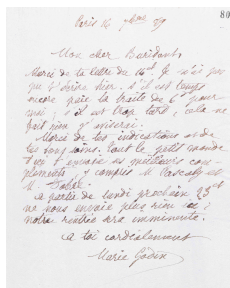 80
Paris 16
Mon cher
Merci de ta lettre du 14. Je n'ai pas
pu t'écrire hier. S'il est temps
encore paie la traite de 6 pour
moi; s'il est trop tard, cela ne
fait rien j'aviserai.
Merci de tes indications et de
tes bons soins. Tout le petit monde
d'ici t'envoie ses meilleurs com-
pliments y compris M.
M.
A partir de lundi prochain 23
ne nous envoie plus rien ici,
notre rentrée sera imminente.
A toi cordialement
Marie